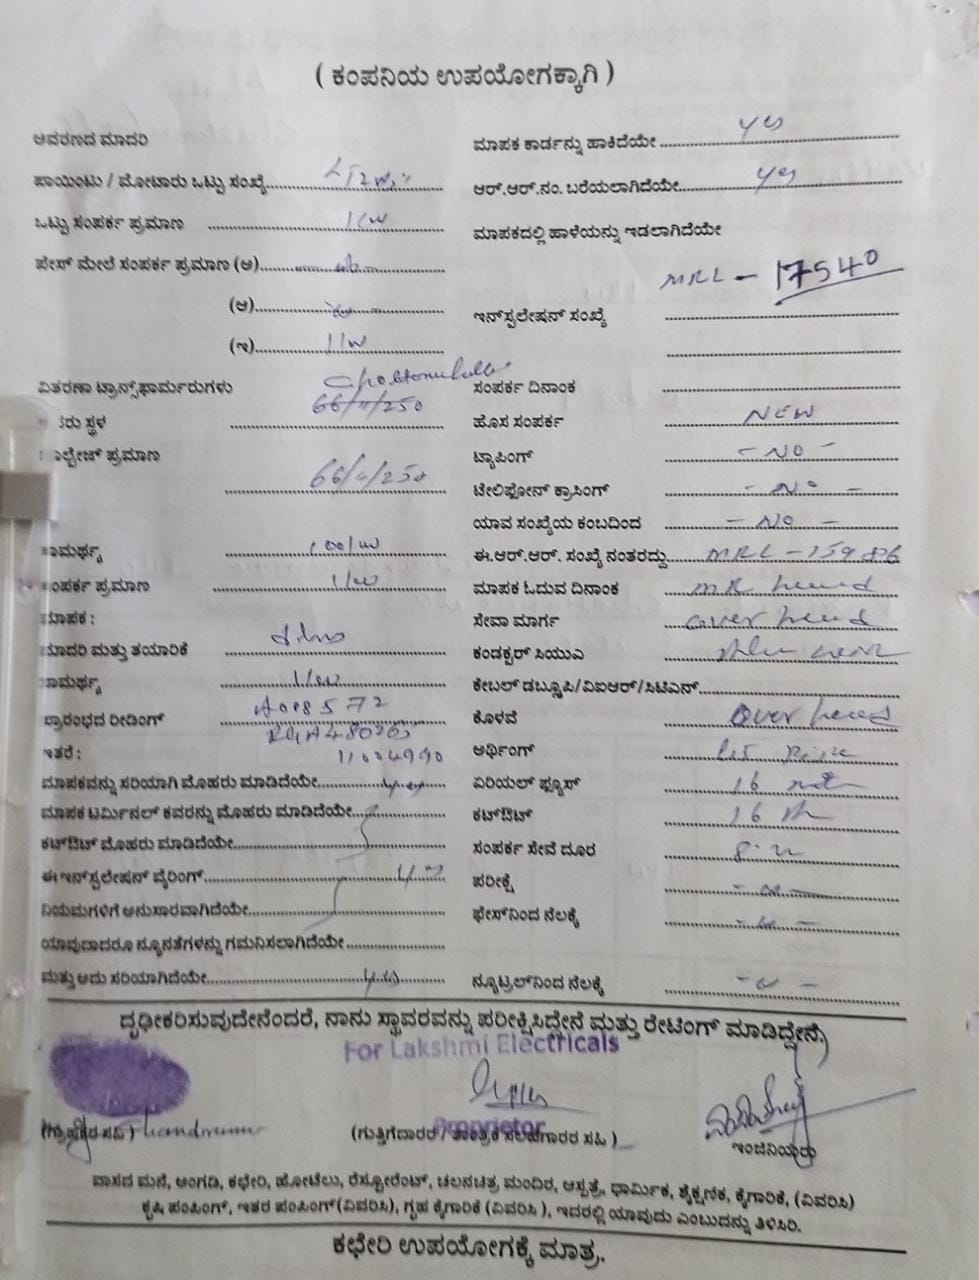 ( ಕಂಪನಿಯ ಉಪಯೋಗಕ್ಕಾಗಿ )
ಆವರಣದ ಮಾದರಿ
ಪಾಯಿಂಟು / ಮೋಟಾರು ಒಟ್ಟು ಸಂಖ್ಯೆ
ಒಟ್ಟು ಸಂಪರ್ಕ ಪ್ರಮಾಣ 1kw
ಫೇಸ್ ಮೇಲೆ ಸಂಪರ್ಕ ಪ್ರಮಾಣ (ಅ)
(ಆ)
(ಇ) 1kw
ವಿತರಣಾ ಟ್ರಾನ್ಸ್‌ಫಾರ್ಮರುಗಳು
ಸ್ಥಳ 66/11/250
ಪ್ರಮಾಣ 66/11/250
ಸಾಮರ್ಥ್ಯ
ಸಂಪರ್ಕ ಪ್ರಮಾಣ 1kw
ಮಾಪಕ :
ಮಾದರಿ ಮತ್ತು ತಯಾರಿಕೆ
ಸಾಮರ್ಥ್ಯ
ಪ್ರಾರಂಭದ ರೀಡಿಂಗ್
ಇತರೆ : 11004990
ಮಾಪಕವನ್ನು ಸರಿಯಾಗಿ ಮೊಹರು ಮಾಡಿದೆಯೇ
ಮಾಪಕ ಟರ್ಮಿನಲ್ ಕವರನ್ನು ಮೊಹರು ಮಾಡಿದೆಯೇ
ಕಟ್‌ಔಟ್ ಮೊಹರು ಮಾಡಿದೆಯೇ
ಈ ಇನ್‌ಸ್ಟಲೇಷನ್ ವೈರಿಂಗ್
ನಿಯಮಗಳಿಗೆ ಅನುಸಾರವಾಗಿದೆಯೇ
ಯಾವುದಾದರೂ ನ್ಯೂನತೆಗಳನ್ನು ಗಮನಿಸಲಾಗಿದೆಯೇ
ಮತ್ತು ಅದು ಸರಿಯಾಗಿದೆಯೇ yes
ಮಾಪಕ ಕಾರ್ಡನ್ನು ಹಾಕಿದೆಯೇ yes
ಆರ್.ಆರ್.ನಂ. ಬರೆಯಲಾಗಿದೆಯೇ yes
ಮಾಪಕದಲ್ಲಿ ಹಾಳೆಯನ್ನು ಇಡಲಾಗಿದೆಯೇ
MRL - 17540
ಇನ್‌ಸ್ಪಲೇಷನ್ ಸಂಖ್ಯೆ
ಸಂಪರ್ಕ ದಿನಾಂಕ
ಹೊಸ ಸಂಪರ್ಕ NEW
ಟ್ಯಾಪಿಂಗ್ - NO -
ಟೇಲಿಫೋನ್ ಕ್ರಾಸಿಂಗ್ - NO -
ಯಾವ ಸಂಖ್ಯೆಯ ಕಂಬದಿಂದ - NO -
ಈ.ಆರ್.ಆರ್. ಸಂಖ್ಯೆ ನಂತರದ್ದು MRL - 15986
ಮಾಪಕ ಓದುವ ದಿನಾಂಕ
ಸೇವಾ ಮಾರ್ಗ over head
ಕಂಡಕ್ಟರ್ ಸಿಯುಎ
ಕೇಬಲ್ ಡಬ್ಲ್ಯೂಪಿ/ವಿಐಆರ್/ಸಿಟಿಎನ್
ಕೊಳವೆ over head
ಅರ್ಥಿಂಗ್
ಏರಿಯಲ್ ಫ್ಯೂಸ್ 16
ಕಟ್‌ಔಟ್ 16
ಸಂಪರ್ಕ ಸೇವೆ ದೂರ
ಪರೀಕ್ಷೆ
ಫೇಸ್‌ನಿಂದ ನೆಲಕ್ಕೆ
ನ್ಯೂಟ್ರಲ್‌ನಿಂದ ನೆಲಕ್ಕೆ
ದೃಢೀಕರಿಸುವುದೇನೆಂದರೆ, ನಾನು ಸ್ಥಾವರವನ್ನು ಪರೀಕ್ಷಿಸಿದ್ದೇನೆ ಮತ್ತು ರೇಟಿಂಗ್ ಮಾಡಿದ್ದೇನೆ.
For Lakshmi Electricals
Proprietor
(ಗ್ರಾಹಕರ ಸಹಿ )
(ಗುತ್ತಿಗೆದಾರರ / ತಾಂತ್ರಿಕ ಸಲಹೆಗಾರರ ಸಹಿ )
ಇಂಜಿನಿಯರು
ವಾಸದ ಮನೆ, ಅಂಗಡಿ, ಕಛೇರಿ, ಹೋಟೆಲು, ರೆಸ್ಟೋರೆಂಟ್, ಚಲನಚಿತ್ರ ಮಂದಿರ, ಆಸ್ಪತ್ರೆ, ಧಾರ್ಮಿಕ, ಶೈಕ್ಷಣಿಕ, ಕೈಗಾರಿಕೆ, (ವಿವರಿಸಿ)
ಕೃಷಿ ಪಂಪಿಂಗ್, ಇತರ ಪಂಪಿಂಗ್(ವಿವರಿಸಿ), ಗೃಹ ಕೈಗಾರಿಕೆ (ವಿವರಿಸಿ ), ಇದರಲ್ಲಿ ಯಾವುದು ಎಂಬುದನ್ನು ತಿಳಿಸಿರಿ.
ಕಛೇರಿ ಉಪಯೋಗಕ್ಕೆ ಮಾತ್ರ.